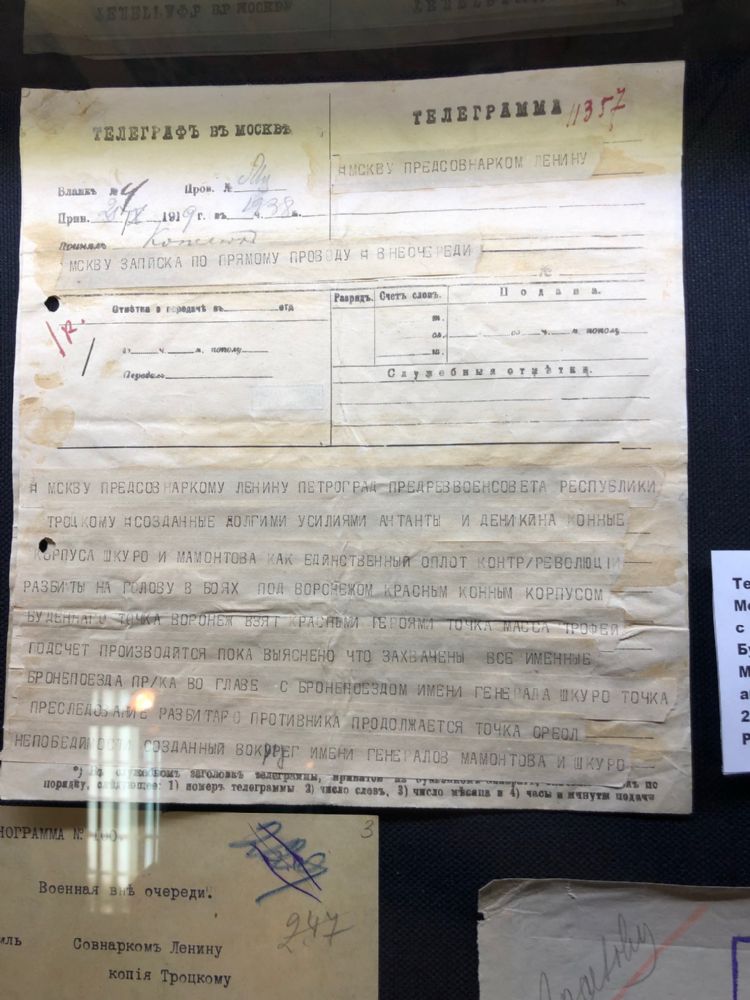 ТЕЛЕГРАФЪ ВЪ МОСКВѢ
ТЕЛЕГРАММА
11357
МСКВУ ПРЕДСОВНАРКОМ ЛЕНИНУ
Бланкъ № 4 Пров. №
Прин. 1919 г. въ ч. 38 м.
Принялъ
МСКВУ ЗАПИСКА ПО ПРЯМОМУ ПРОВОДУ Я ВНЕОЧЕРЕДИ
№
Отмѣтка о передачѣ въ отд
го ч. м. пополу
Передалъ
Разрядъ. Счетъ словъ. Подана.
го ч. м. пополу
Служебныя отмѣтки.
1р.
Я МСКВУ ПРЕДСОВНАРКОМУ ЛЕНИНУ ПЕТРОГРАД ПРЕДРЕВВОЕНСОВЕТА РЕСПУБЛИКИ
ТРОЦКОМУ ЯСОЗДАННЫЕ ДОЛГИМИ УСИЛИЯМИ АНТАНТЫ И ДЕНИКИНА КОННЫЕ
КОРПУСА ШКУРО И МАМОНТОВА КАК ЕДИНСТВЕННЫЙ ОПЛОТ КОНТР/РЕВОЛЮЦИИ
РАЗБИТЫ НА ГОЛОВУ В БОЯХ ПОД ВОРОНЕЖОМ КРАСНЫМ КОННЫМ КОРПУСОМ
БУДЕННАГО ТОЧКА ВОРОНЕЖ ВЗЯТ КРАСНЫМИ ГЕРОЯМИ ТОЧКА МАССА ТРОФЕЙ
ПОДСЧЕТ ПРОИЗВОДЯТСЯ ПОКА ВЫЯСНЕНО ЧТО ЗАХВАЧЕНЫ ВСЕ ИМЕННЫЕ
БРОНЕПОЕЗДА ПР/КА ВО ГЛАВЕ С БРОНЕПОЕЗДОМ ИМЕНИ ГЕНЕРАЛА ШКУРО ТОЧКА
ПРЕСЛЕДОВАНИЕ РАЗБИТАГО ПРОТИВНИКА ПРОДОЛЖАЕТСЯ ТОЧКА ОРЕОЛ
НЕПОБЕДИМОСТИ СОЗДАННЫЙ ВОКРУГ ИМЕНИ ГЕНЕРАЛОВ МАМОНТОВА И ШКУРО
*) Въ служебномъ заголовкѣ телеграммы, по
порядку, слѣдующее: 1) номеръ телеграммы 2) число словъ, 3) число мѣсяца и 4) часы и минуты подачи
НОГРАММА №
3
247
Военная внѣ очереди.
Совнаркомъ Ленину
копія Троцкому
Те
с
Бу
2